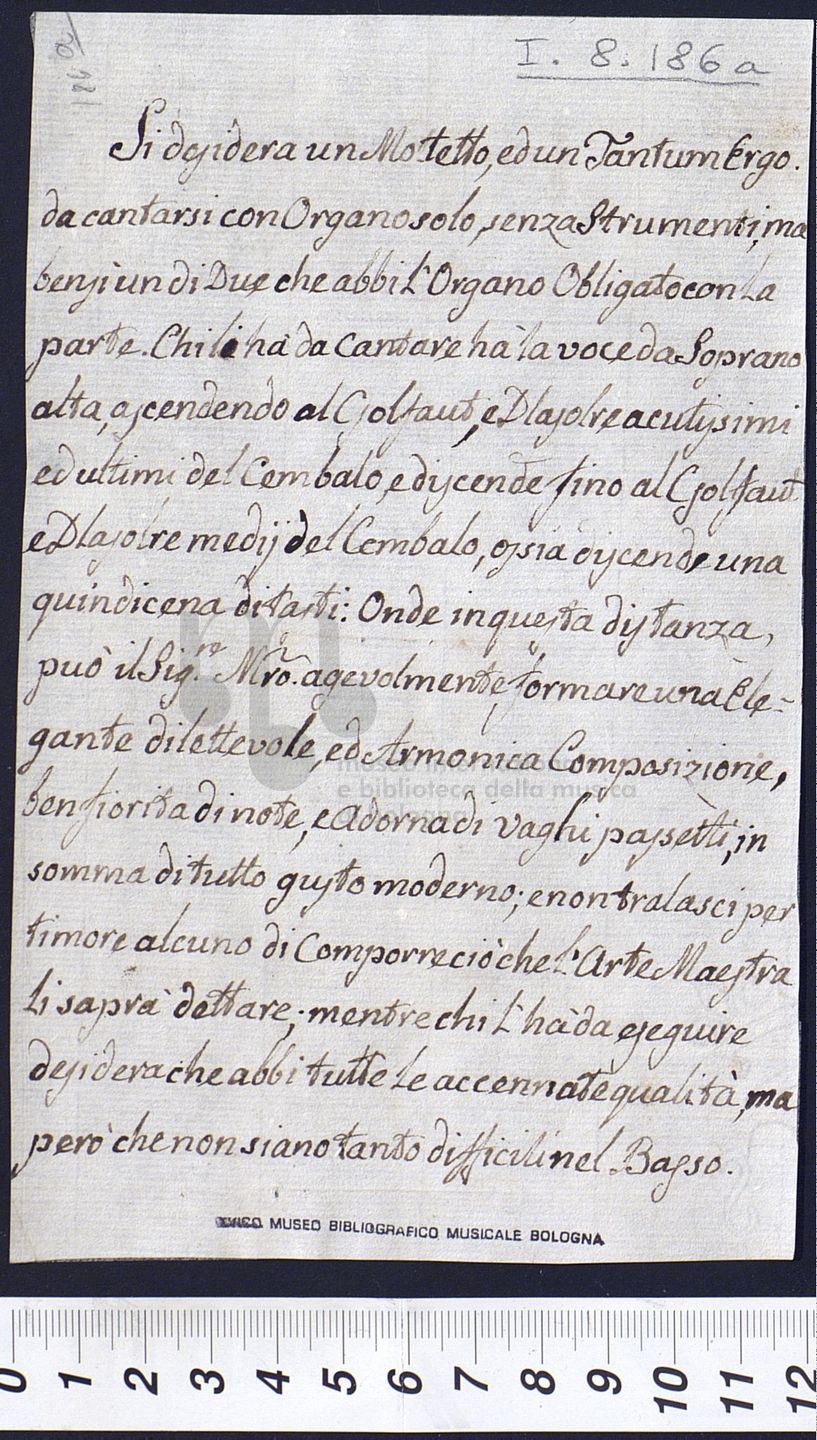 186 a
I. 8. 186a
Si desidera un Mottetto, ed un Tantum Ergo.
da cantarsi con Organo solo, senza Strumenti, ma
bensì un di Due che abbi l'Organo Obligato con la
parte. Chi li hà da Cantare hà la voce da Soprano
alta, ascendendo al Csolfaut, e Dlasolre acutissimi
ed ultimi del Cembalo, e discende fino al Csolfaut
e Dlasolre medij del Cembalo, ossia discende una
quindicena di tasti: Onde in questa distanza,
può il Sig.re Mro. agevolmente, formare una Ele-
gante dilettevole, ed Armonica Composizione,
ben fiorita di note, e adorna di vaghi passetti, in
somma di tutto gusto moderno; e non tralasci per
timore alcuno di Comporre ciò che l'Arte Maestra
li saprà dettare; mentre chi l'hà da eseguire
desidera che abbi tutte le accennate qualità, ma
però che non siano tanto difficili nel Basso.
museo internazionale
e biblioteca della musica
di bologna
CIVICO MUSEO BIBLIOGRAFICO MUSICALE BOLOGNA
0 1 2 3 4 5 6 7 8 9 10 11 12